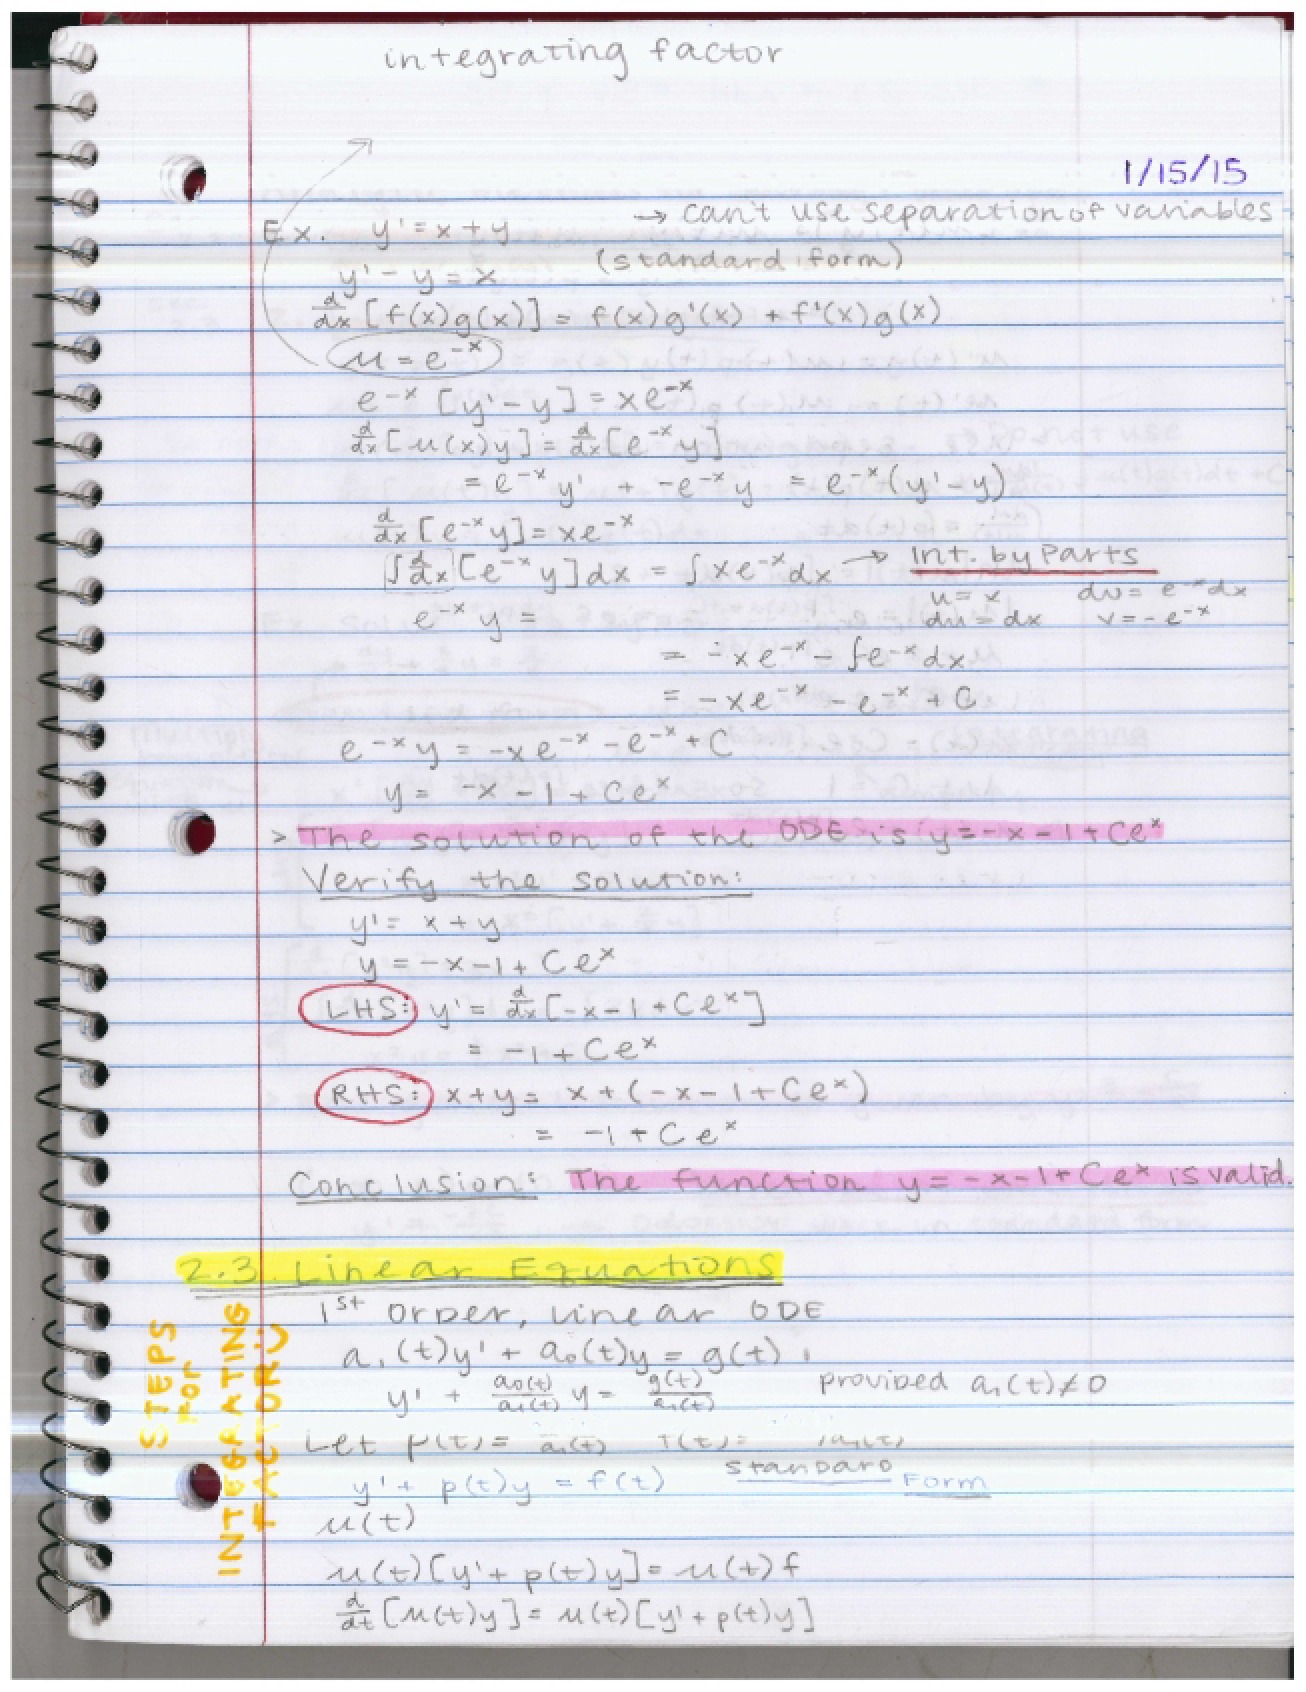 integrating factor
1/15/15
→ can't use separation of variables
Ex. y' = x + y
(standard form)
y' - y = x
d/dx [f(x)g(x)] = f(x)g'(x) + f'(x)g(x)
μ = e^-x
e^-x [y' - y] = xe^-x
d/dx [μ(x)y] = d/dx [e^-x y]
= e^-x y' + -e^-x y = e^-x (y' - y)
d/dx [e^-x y] = xe^-x
∫ d/dx [e^-x y] dx = ∫ xe^-x dx → Int. by Parts
u = x dv = e^-x dx
e^-x y = du = dx v = -e^-x
= -xe^-x - ∫e^-x dx
= -xe^-x - e^-x + C
e^-x y = -xe^-x - e^-x + C
y = -x - 1 + Ce^x
> The solution of the ODE is y = -x - 1 + Ce^x
Verify the solution:
y' = x + y
y = -x - 1 + Ce^x
LHS: y' = d/dx [-x - 1 + Ce^x]
= -1 + Ce^x
RHS: x + y = x + (-x - 1 + Ce^x)
= -1 + Ce^x
Conclusion: The function y = -x - 1 + Ce^x is valid.
2.3 Linear Equations
STEPS FOR INTEGRATING FACTOR Ü
1st ORDER, linear ODE
a₁(t)y' + a₀(t)y = g(t)
y' + a₀(t)/a₁(t) y = g(t)/a₁(t) provided a₁(t) ≠ 0
Let p(t) = a₁(t) f(t) = /a₁(t)
y' + p(t)y = f(t) standard Form
μ(t)
μ(t)[y' + p(t)y] = μ(t)f
d/dt [μ(t)y] = μ(t)[y' + p(t)y]